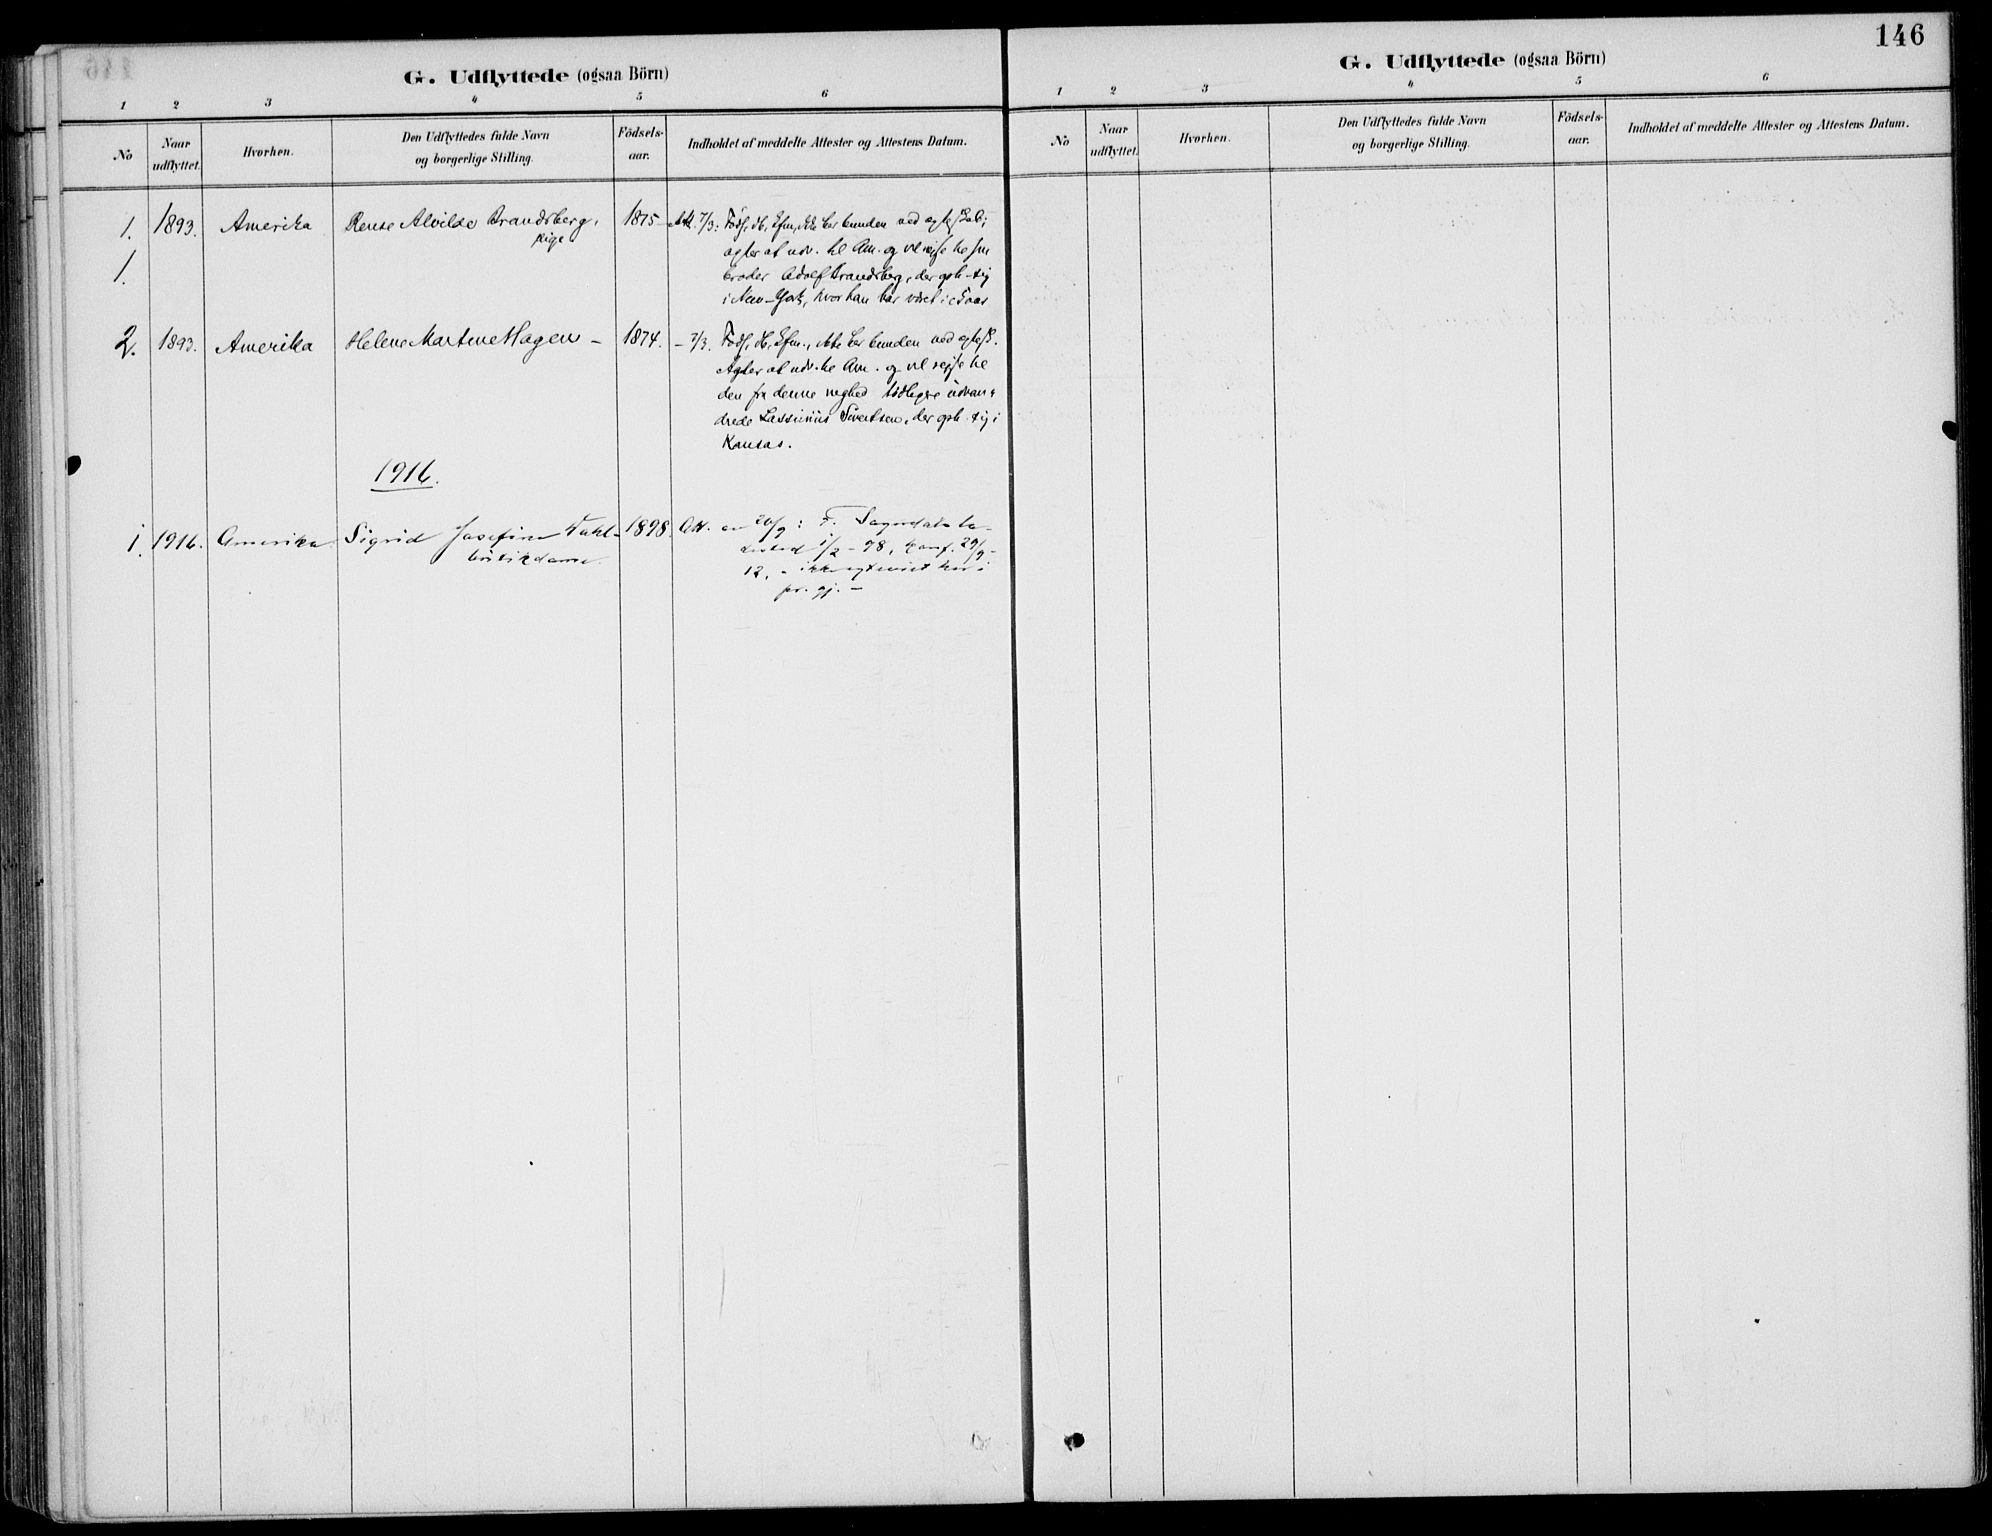 146
G. Udflyttede (ogsaa Börn)
1 2 3 4 5 6
No
Naar udflyttet.
Hvorhen.
Den Udflyttedes fulde Navn
og borgerlige Stilling.
Födsels-
aar.
Indholdet af meddelte Attester og Attestens Datum.
1. 1893. Amerika Alvilde Brandsberg, 1875 Att. 7/3: ikke her bunden ved
pige
1. agter at udv. til Am. og vil rejse til sin
broder Adolf Brandsberg, der oph. sig
i New-York, hvor han har været i
2. 1893. Amerika Helene Martine Hagen - 1874. - 7/3. ikke her bunden ved
Agter at udv. til Am. og vil rejse til
den fra denne meghed tidligere udvan-
drede Sivertsen, der oph. sig i
Kansas.
1916.
1. 1916. Amerika Sigrid Josefine Dahl- 1898. Att. av 20/9: F.
butikdame. 1/2 - 98, konf. 29/9 -
12, - ikke her i
pr. gj. -
G. Udflyttede (ogsaa Börn)
1 2 3 4 5 6
No
Naar
udflyttet.
Hvorhen.
Den Udflyttedes fulde Navn
og borgerlige Stilling.
Födsels-
aar.
Indholdet af meddelte Attester og Attestens Datum.